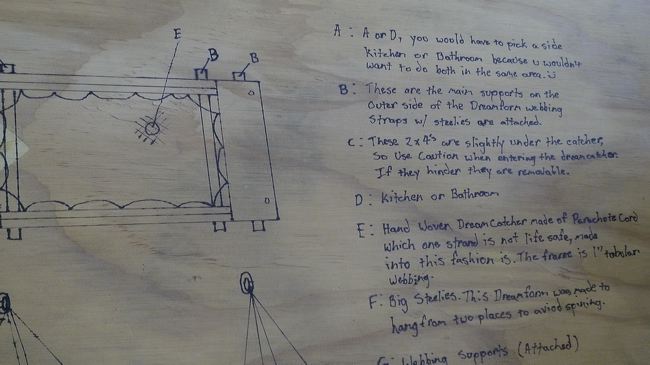 E
B
B
A: A or D, you would have to pick a side
Kitchen or Bathroom because u wouldn't
want to do both in the same area. ü
B: These are the main supports on the
Outer side of the Dreamform webbing
Straps w/ steelies are attached.
C: These 2x4's are slightly under the catcher,
So Use Caution when entering the dreamcatcher.
If they hinder they are removable.
D: Kitchen or Bathroom
E: Hand Woven DreamCatcher made of Parachote Cord
which one strand is not life safe, made
into this fashion is. The frame is 1" tabular
webbing.
F: Big Steelies. This Dreamform was made to
hang from two places to aviod spining.
G: Webbing Supports (Attached)